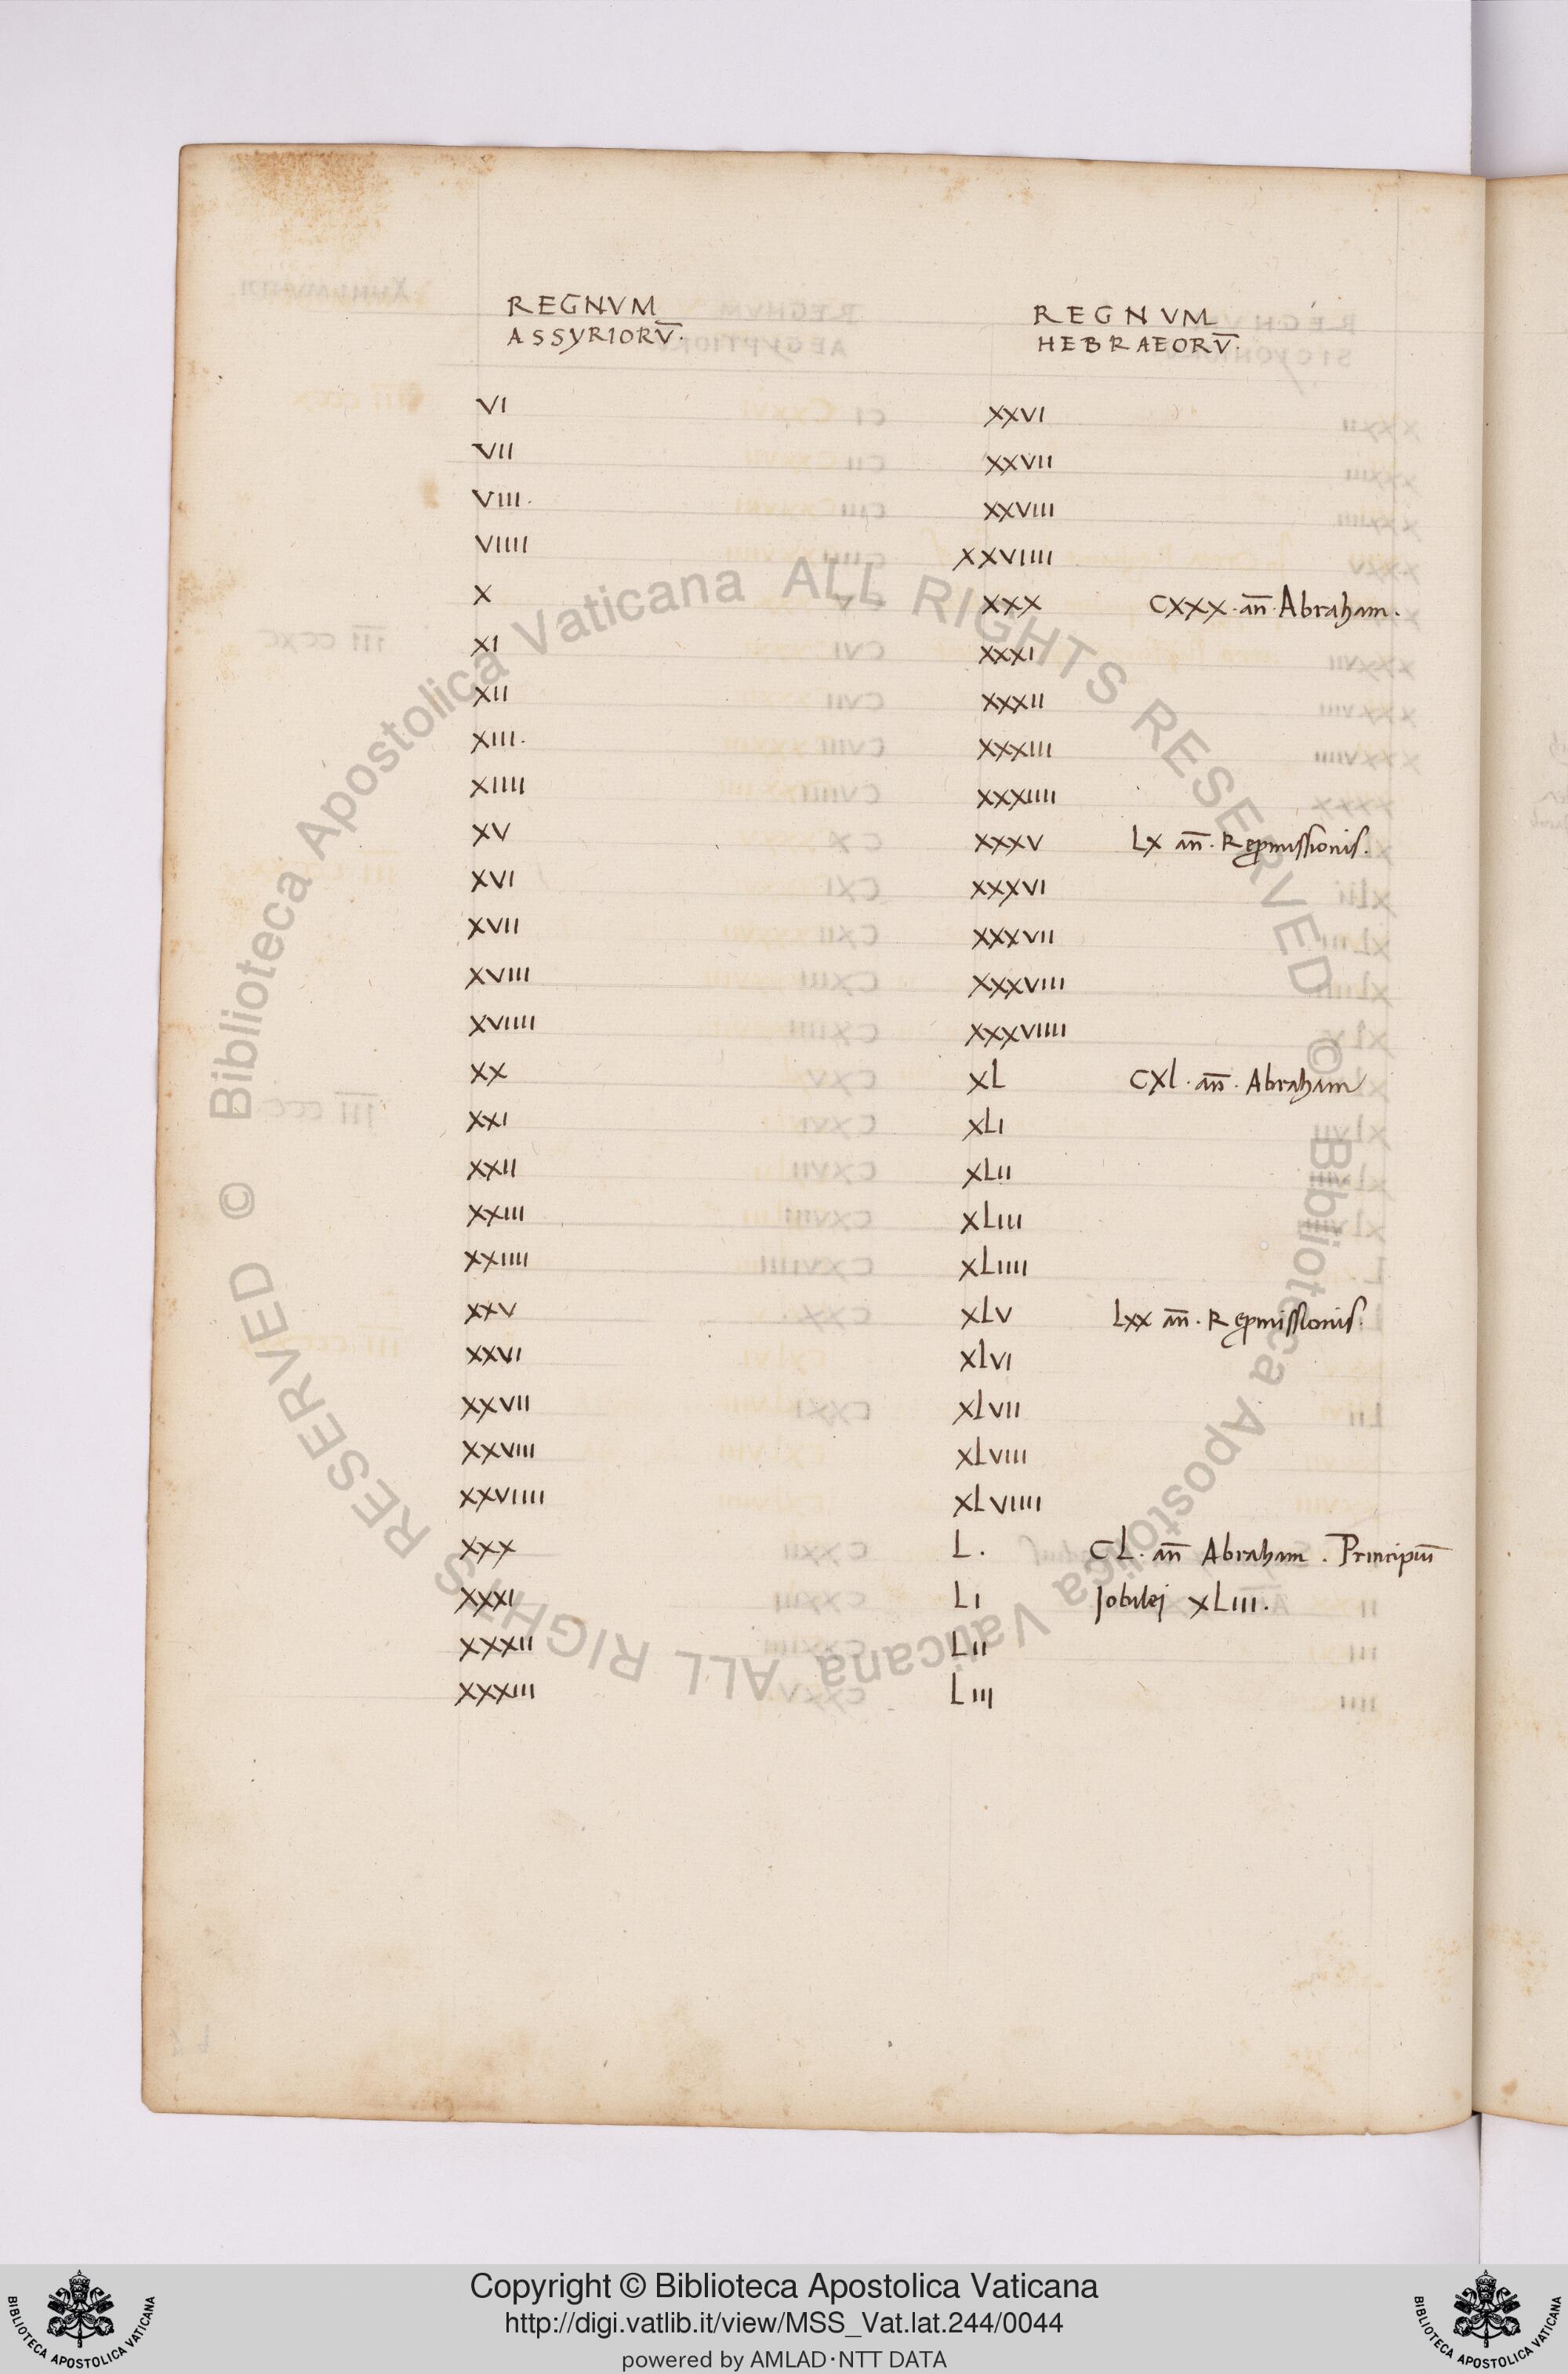 REGNVM REGNVM
ASSYRIORV̄. HEBRAEORV̄.
VI XXVI
VII XXVII
VIII. XXVIII
VIIII XXVIIII
X XXX CXXX. an̄. Abraham.
XI XXXI
XII XXXII
XIII. XXXIII
XIIII XXXIIII
XV XXXV LX an̄. Reꝓmissionis.
XVI XXXVI
XVII XXXVII
XVIII XXXVIII
XVIIII XXXVIIII
XX XL CXL. an̄. Abraham
XXI XLI
XXII XLII
XXIII XLIII
XXIIII XLIIII
XXV XLV Lxx an̄. Reꝓmissionis.
XXVI XLVI
XXVII XLVII
XXVIII XLVIII
XXVIIII XLVIIII
XXX L. CL. an̄ Abraham. Principiū
XXXI LI Jobilej XLIII.
XXXII LII
XXXIII LIII
© Biblioteca Apostolica Vaticana ALL RIGHTS RESERVED © Biblioteca Apostolica Vaticana ALL RIGHTS RESERVED
Copyright © Biblioteca Apostolica Vaticana
http://digi.vatlib.it/view/MSS_Vat.lat.244/0044
powered by AMLAD·NTT DATA
BIBLIOTECA APOSTOLICA VATICANA
BIBLIOTECA APOSTOLICA VATICANA